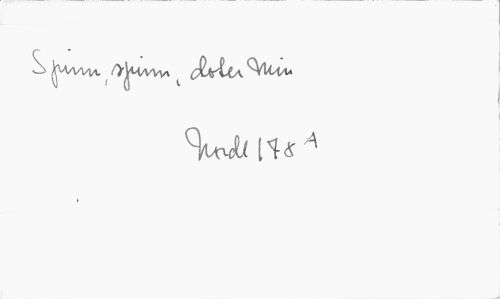 Spinn, spinn, doter min
Nordl 178 A